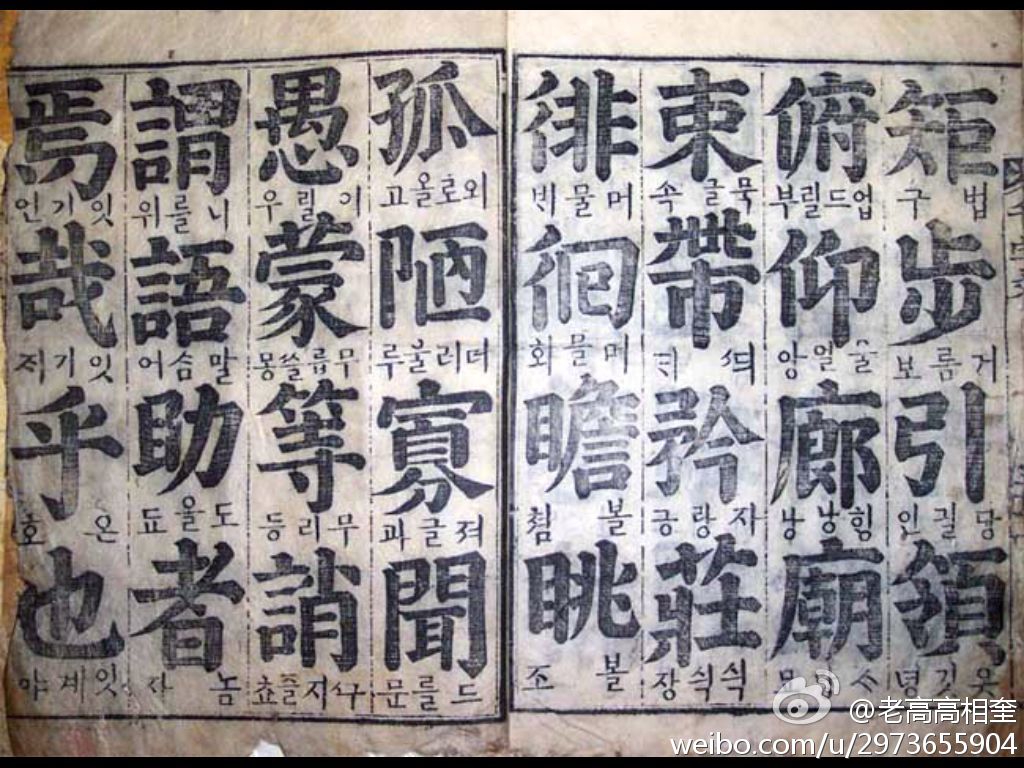 矩 법 구 步 거름 보 引 인 領
俯 업드릴 부 仰 앙 廊 힝낭 낭 廟
束 묵글 속 帶 矜 자랑 긍 莊 싁싁 장
徘 머물 徊 머믈 회 瞻 볼 쳠 眺 볼 조
孤 외로올 고 陋 더러울 루 寡 져글 과 聞 드를 문
愚 우 蒙 무릅쓸 몽 等 무리 등 誚 쵸
謂 니를 위 語 말슴 어 助 도을 조 者 놈 자
焉 잇기 언 哉 잇기 乎 온 호 也 잇계 야
@老高高相奎
weibo.com/u/2973655904